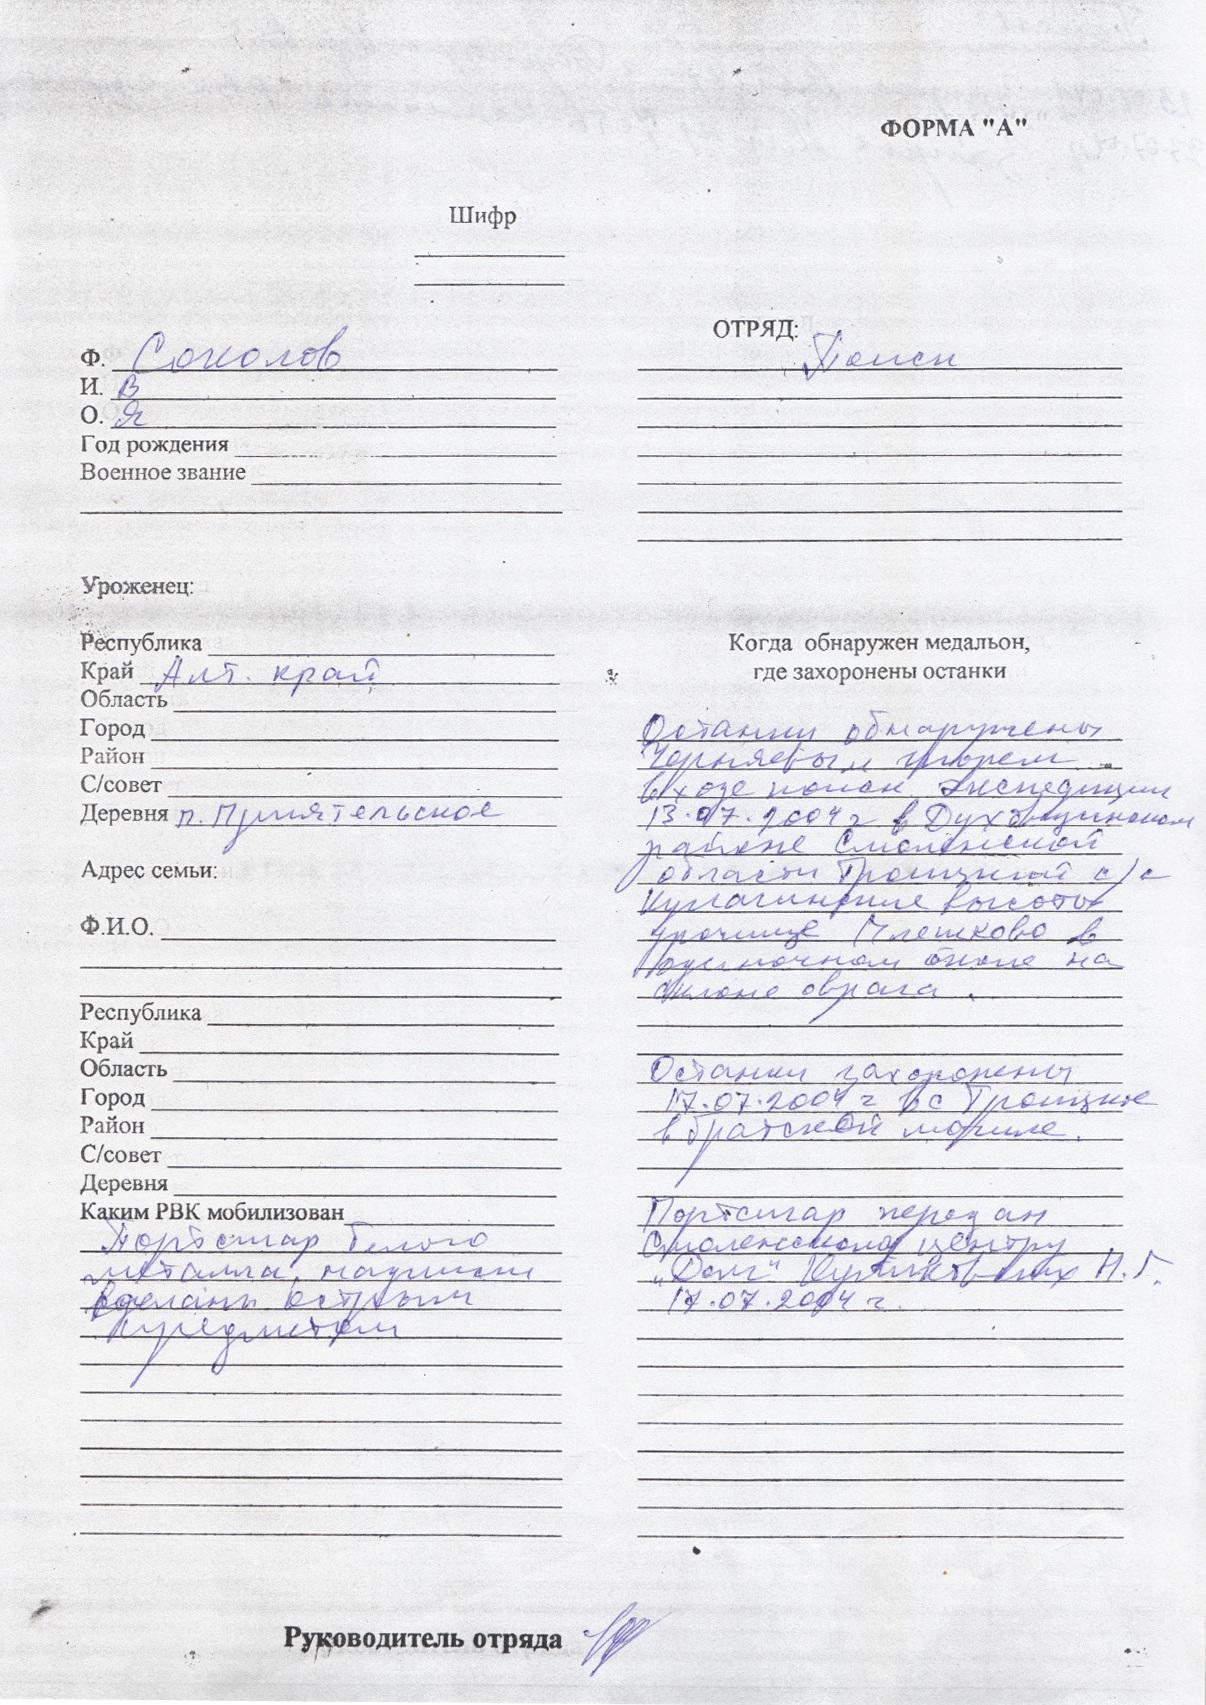 ФОРМА "А"
Шифр
ОТРЯД:
Ф. Соколов
Поиск
И. В
О. Я
Год рождения
Военное звание
Уроженец:
Республика
Край Алт. край
Область
Город
Район
С/совет
Деревня п. Приятельское
Адрес семьи:
Ф.И.О.
Республика
Край
Область
Город
Район
С/совет
Деревня
Каким РВК мобилизован
Портсигар белого
металла, надписи
сделаны острым
предметом
Когда обнаружен медальон,
где захоронены останки
Останки обнаружены
Черняевым Игорем
в ходе поиск. экспедиции
13.07.2004 г в Духовщинском
районе Смоленской
области Троицкий с/с
Кулагинские высоты
урочище Плешково в
одиночном окопе на
склоне оврага.
Останки захоронены
17.07.2004 г в с Троицкое
в братской могиле.
Портсигар передан
Смоленскому центру
„Долг" Куликовских Н.Г.
17.07.2004 г.
Руководитель отряда